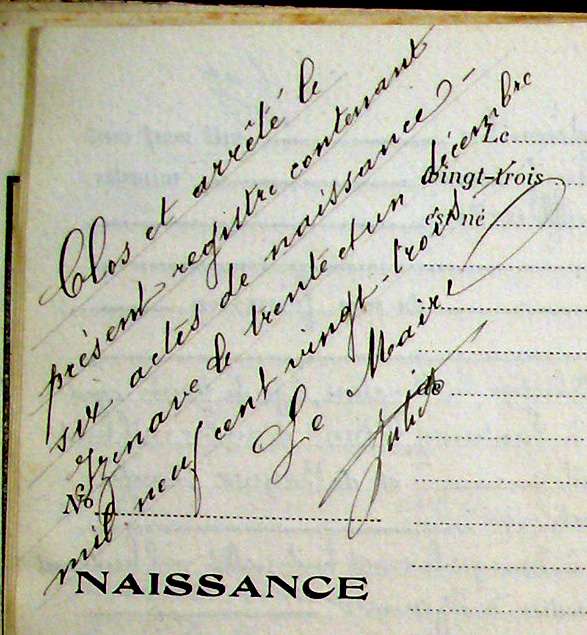 Clos et arrêté le
présent registre contenant
six actes de naissance -
Izenave le trente et un décembre
mil neuf cent vingt-trois
Le Maire
Le
vingt-trois
est né
de
No
NAISSANCE